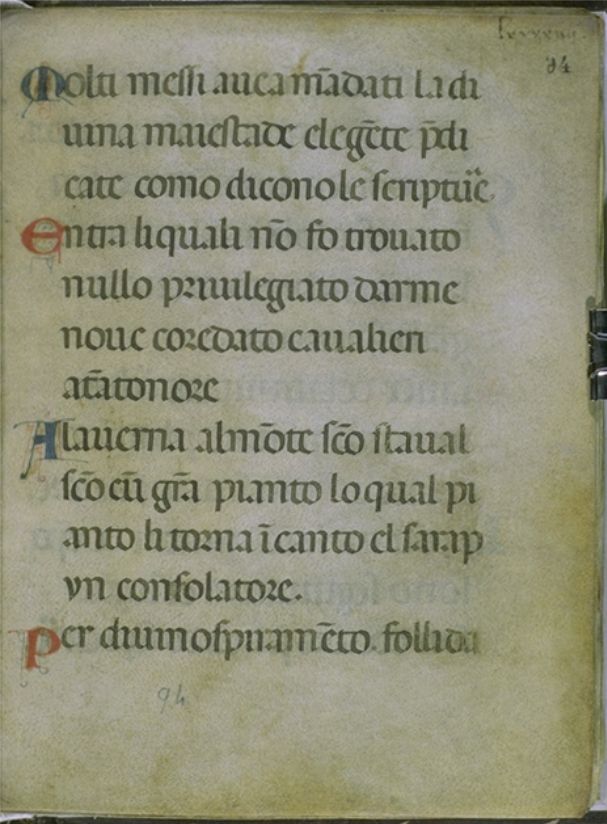 lxxxxiiij.
94
Molti messi auea mādati la di
uina maiestade elegēte p̄di
cate como dicono le scriptur̄e
Entra li quali nō fo trouato
nullo priuilegiato darme
noue coredato caualieri
atātonore
Alauerna almōte sc̄o staual
sc̄o cū grā pianto lo qual pi
anto li torna ī canto el sarap
yn consolatore.
Per diuinospiramēto. folli da
94